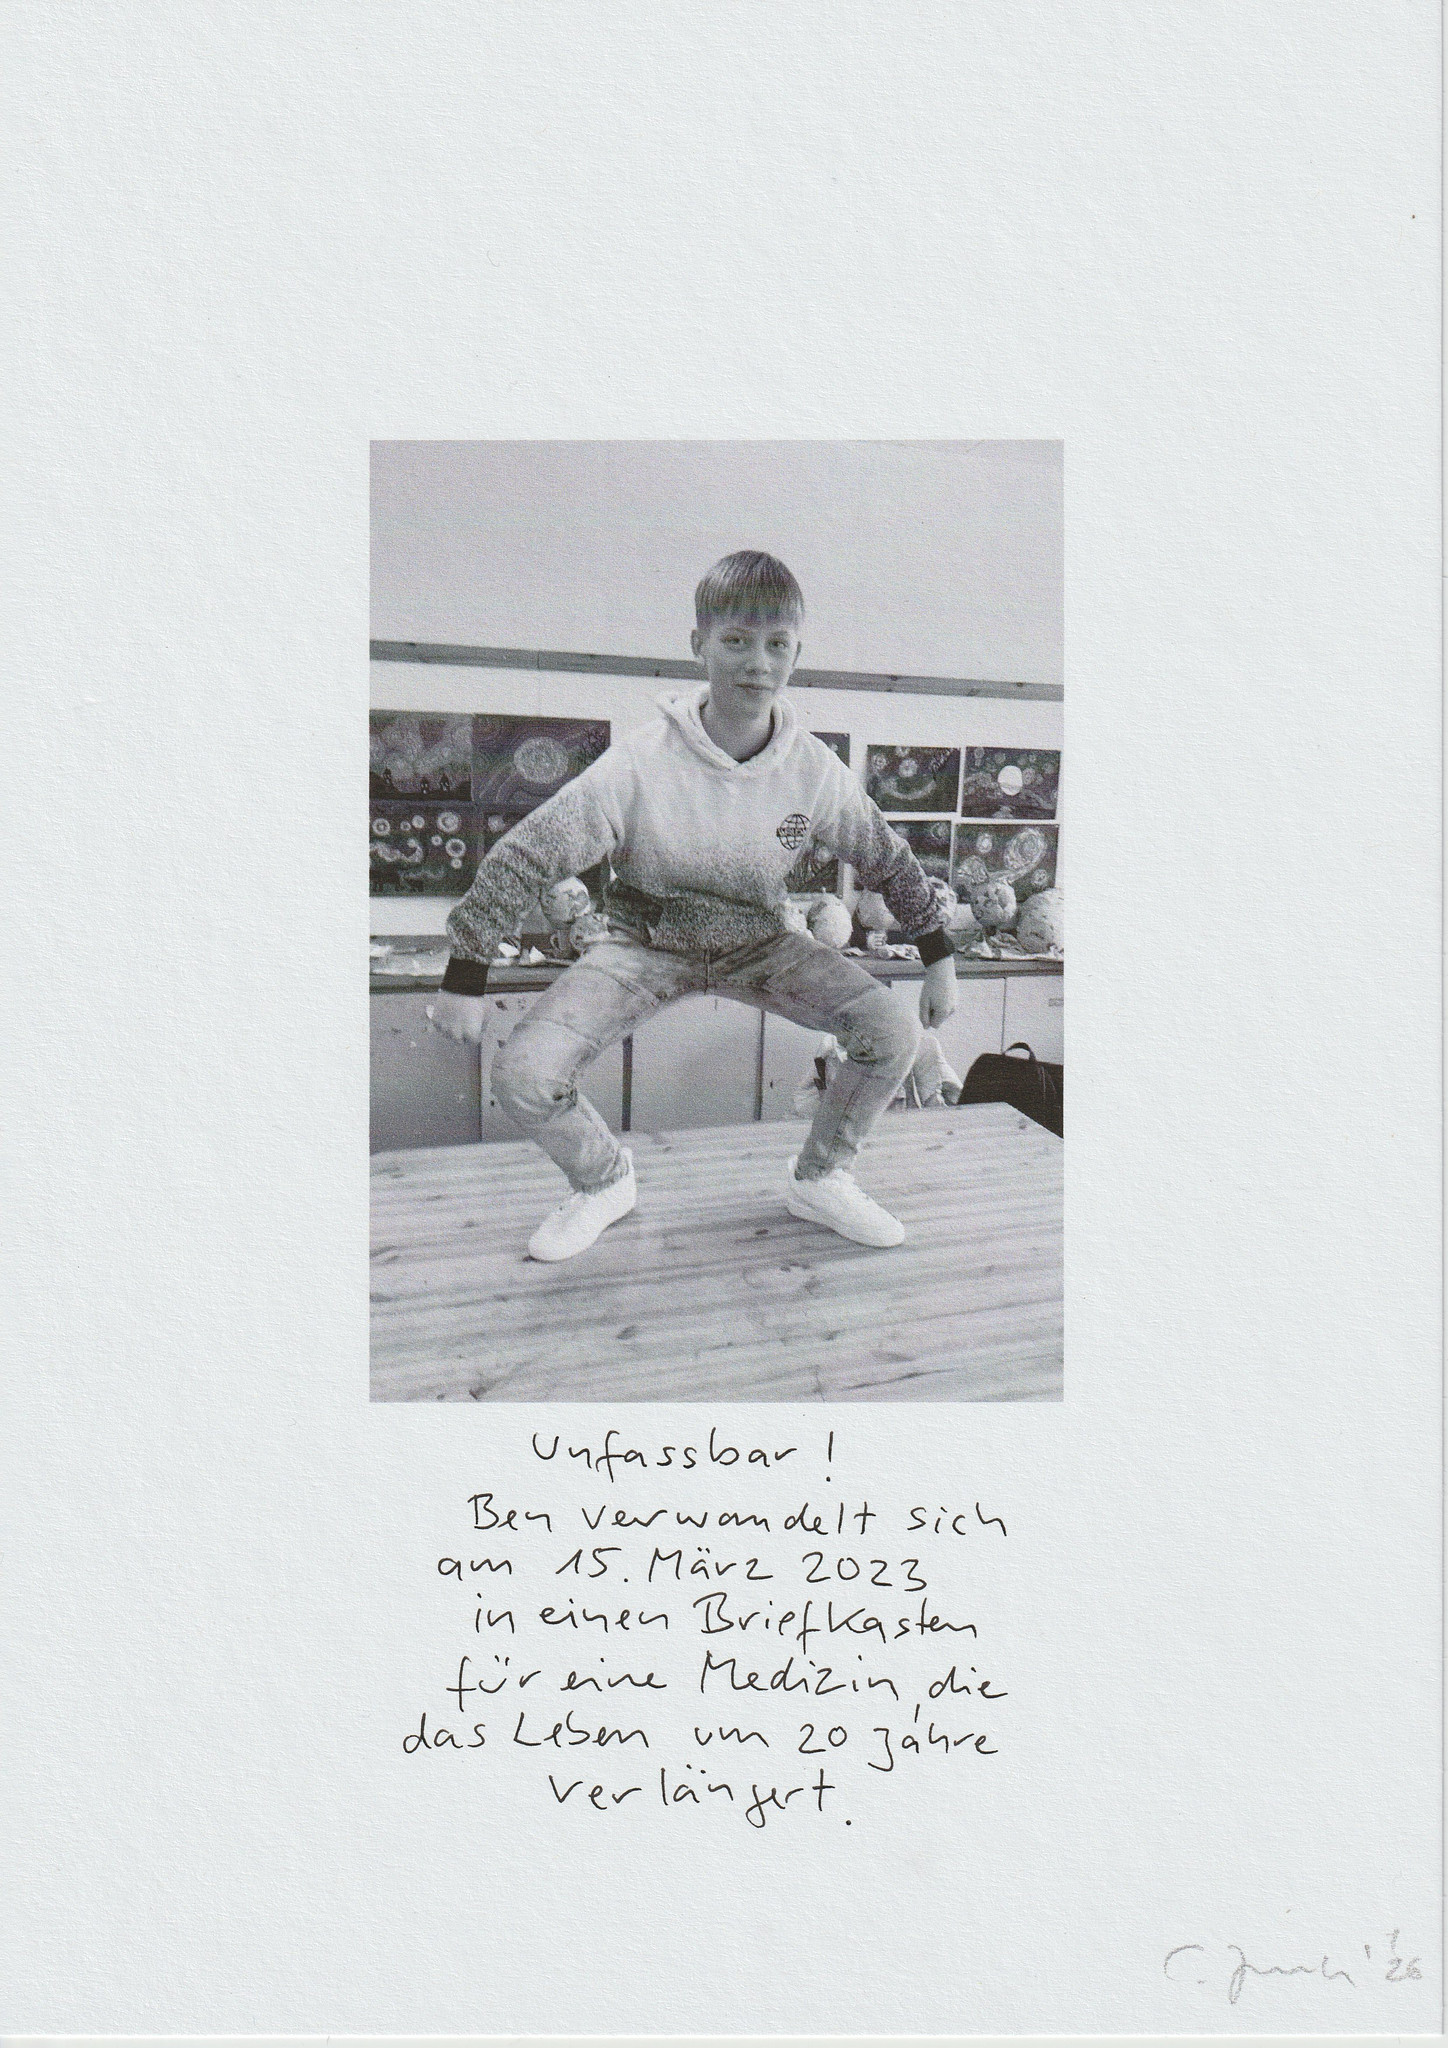 Unfassbar !
Ben verwandelt sich
am 15. März 2023
in einen Briefkasten
für eine Medizin, die
das Leben um 20 Jahre
verlängert.
C.